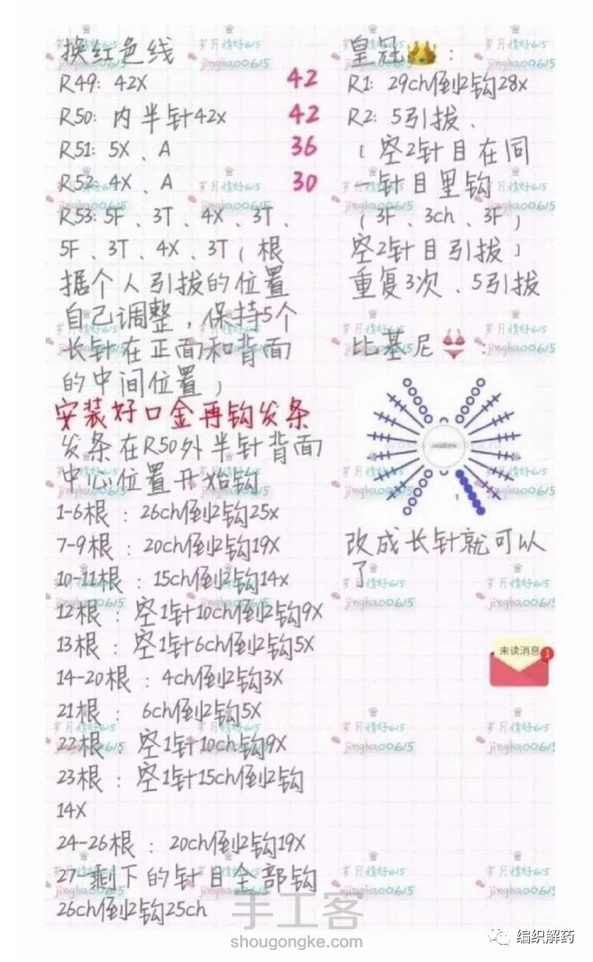 换红色线
R49: 42X 42
R50: 内半针42x 42
R51: 5X、A 36
R52: 4X、A 30
R53: 5F、3T、4X、3T、
5F、3T、4X、3T(根
据个人引拔的位置
自己调整,保持5个
长针在正面和背面
的中间位置)
安装好口金再钩发条
发条在R50外半针背面
中心位置开始钩
1-6根:26ch倒2钩25x
7-9根:20ch倒2钩19X
10-11根:15ch倒2钩14x
12根:空1针10ch倒2钩9X
13根:空1针6ch倒2钩5X
14-20根:4ch倒2钩3X
21根: 6ch倒2钩5X
22根: 空1针10ch钩9X
23根:空1针15ch倒2钩
14X
24-26根:20ch倒2钩19X
27-剩下的针目全部钩
26ch倒2钩25ch
皇冠👑:
R1: 29ch倒2钩28x
R2: 5引拔、
[空2针目在同
一针目里钩
(3F、3ch、3F)
空2针目引拔]
重复3次、5引拔
比基尼👙:
1
改成长针就可以
了
未读消息
1
岁月情好615
jingha00615
手工客
shougongke.com
编织解药